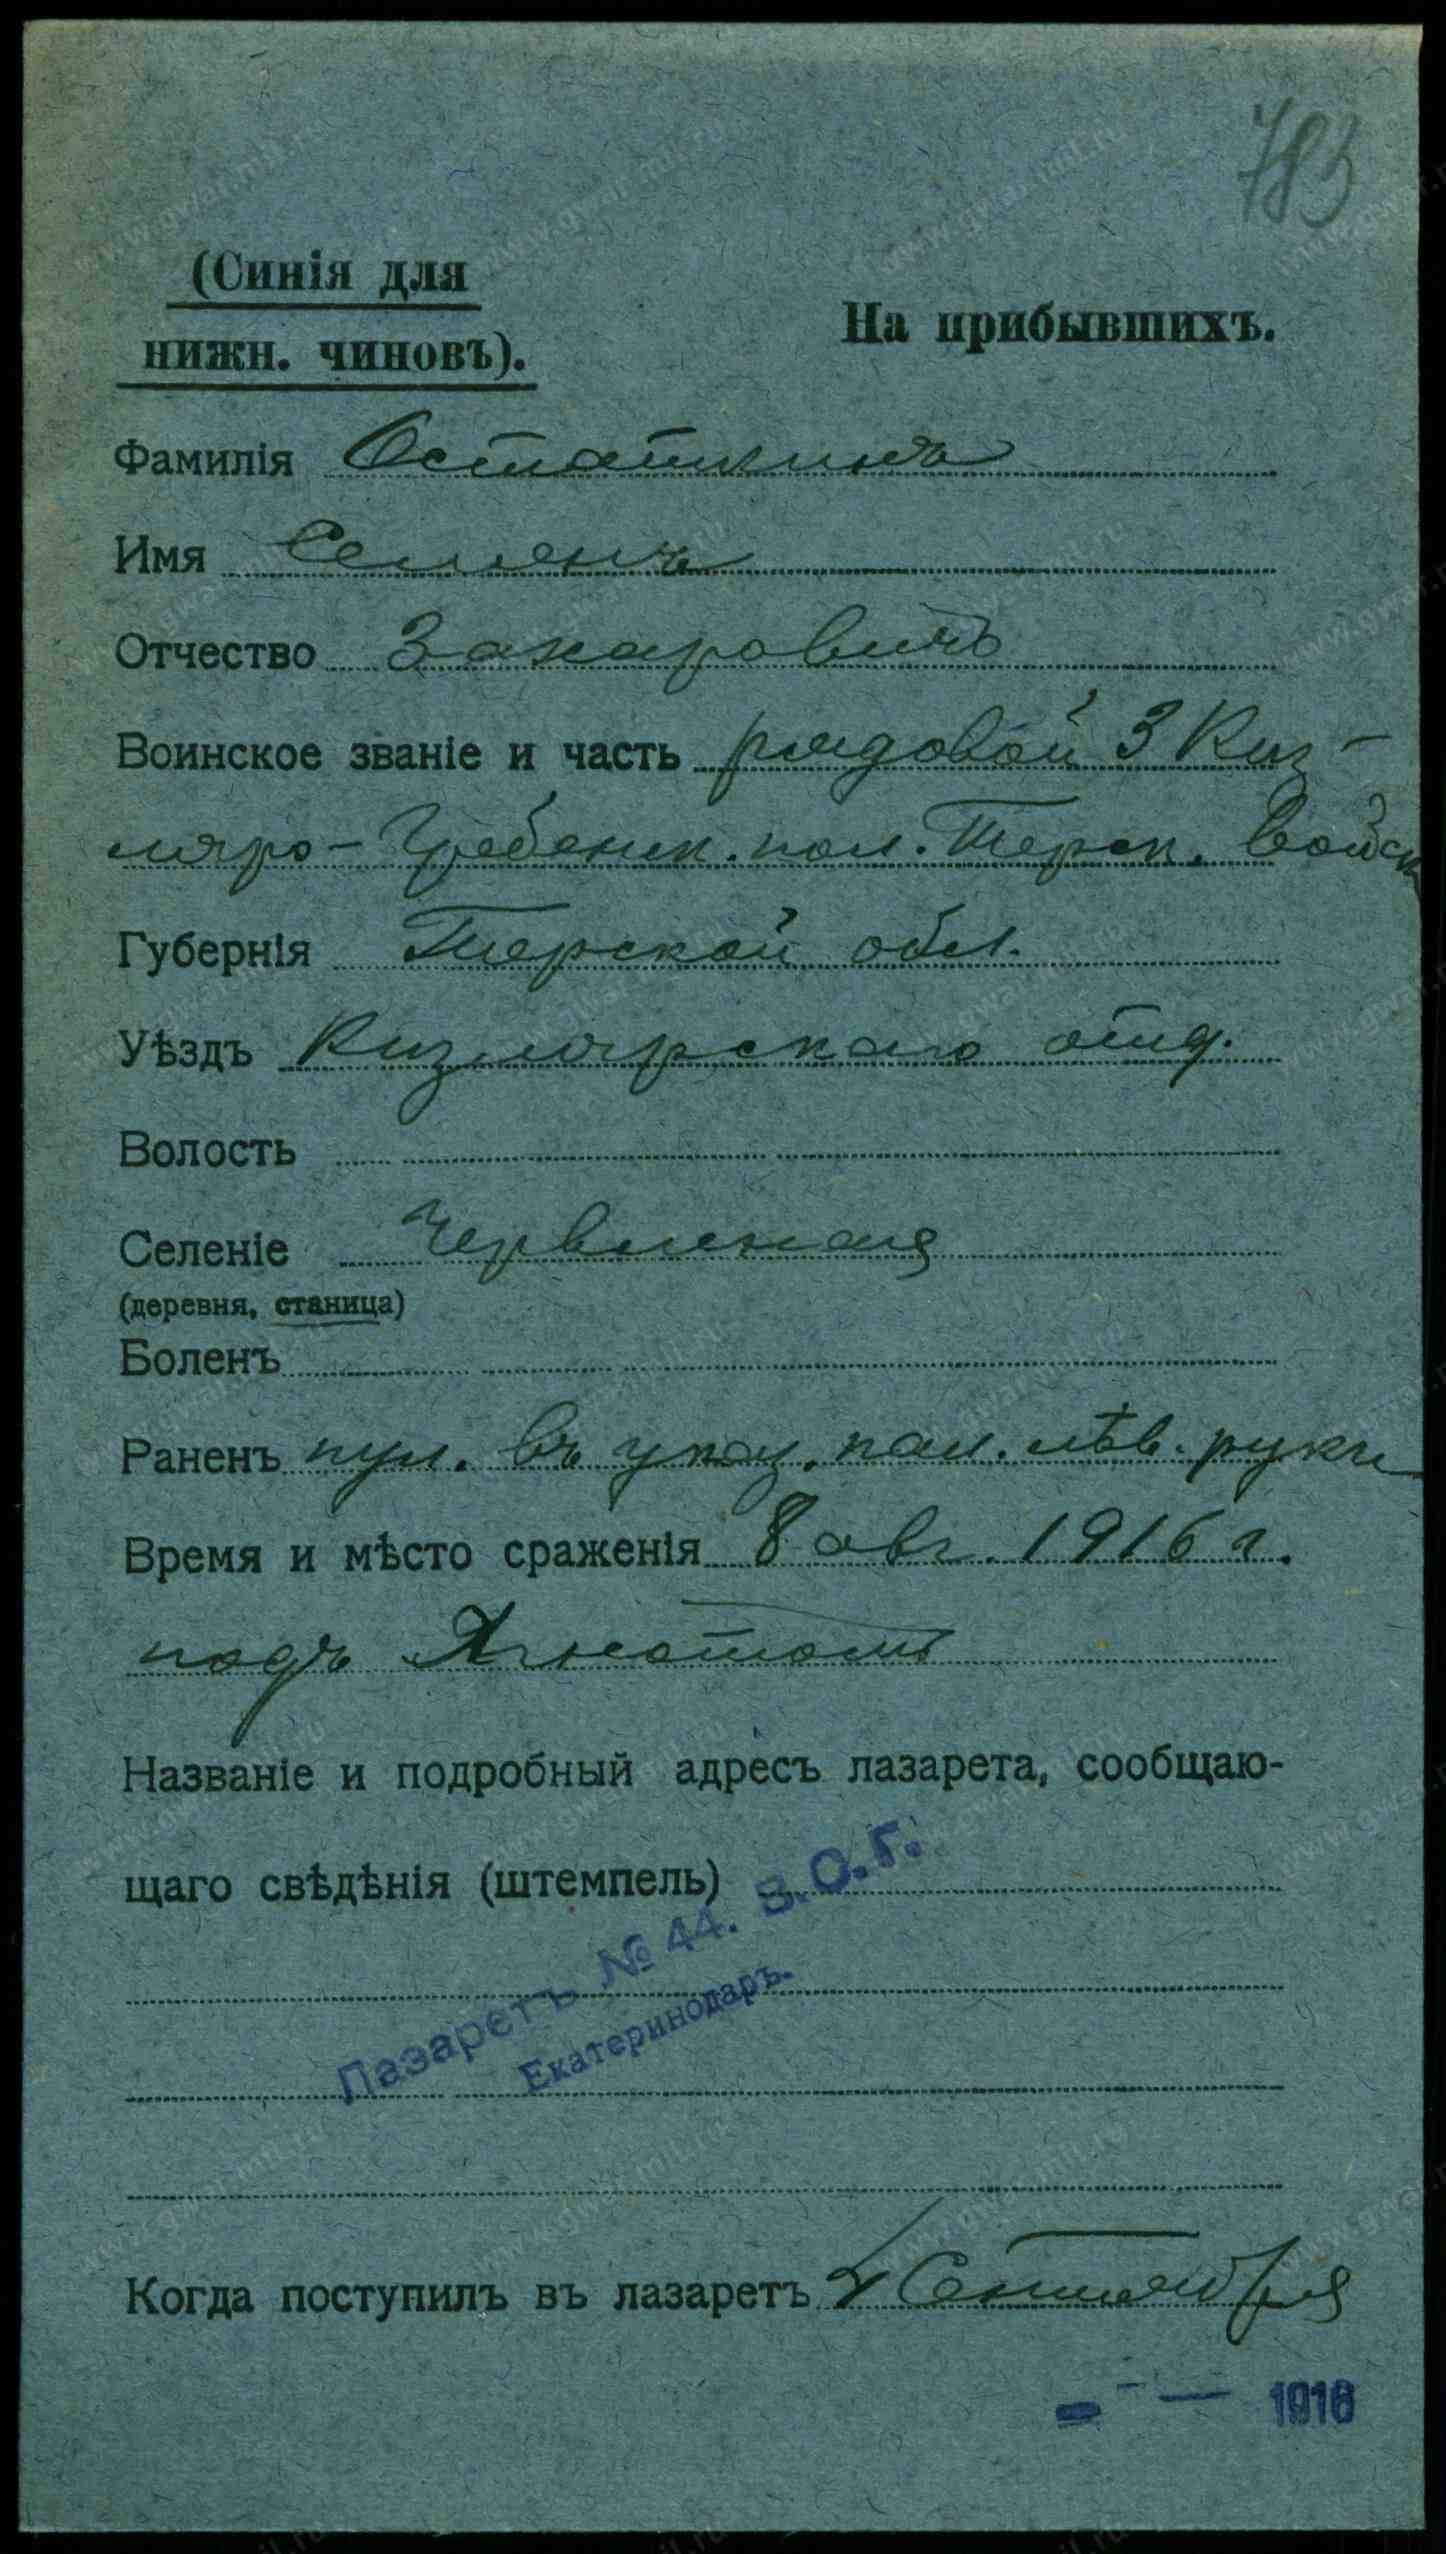 783
(Синія для
нижн. чиновъ).
На прибывшихъ.
Фамилія Остатинъ
Имя Семенъ
Отчество Захаровичъ
Воинское званіе и часть рядовой 3 Киз-
ляро-Гребенск. пол. Терск. Войск
Губернія Терской обл.
Уѣздъ Кизлярскаго отд.
Волость
Селеніе Червленная
(деревня, станица)
Боленъ
Раненъ пул. въ указ. пал. лѣв. руки
Время и мѣсто сраженія 8 авг. 1916 г.
подъ
Названіе и подробный адресъ лазарета, сообщаю-
щаго свѣдѣнія (штемпель)
Лазаретъ № 44. В.С.Г.
Екатеринодаръ.
Когда поступилъ въ лазаретъ Сентября
1916
www.gwar.mil.ru